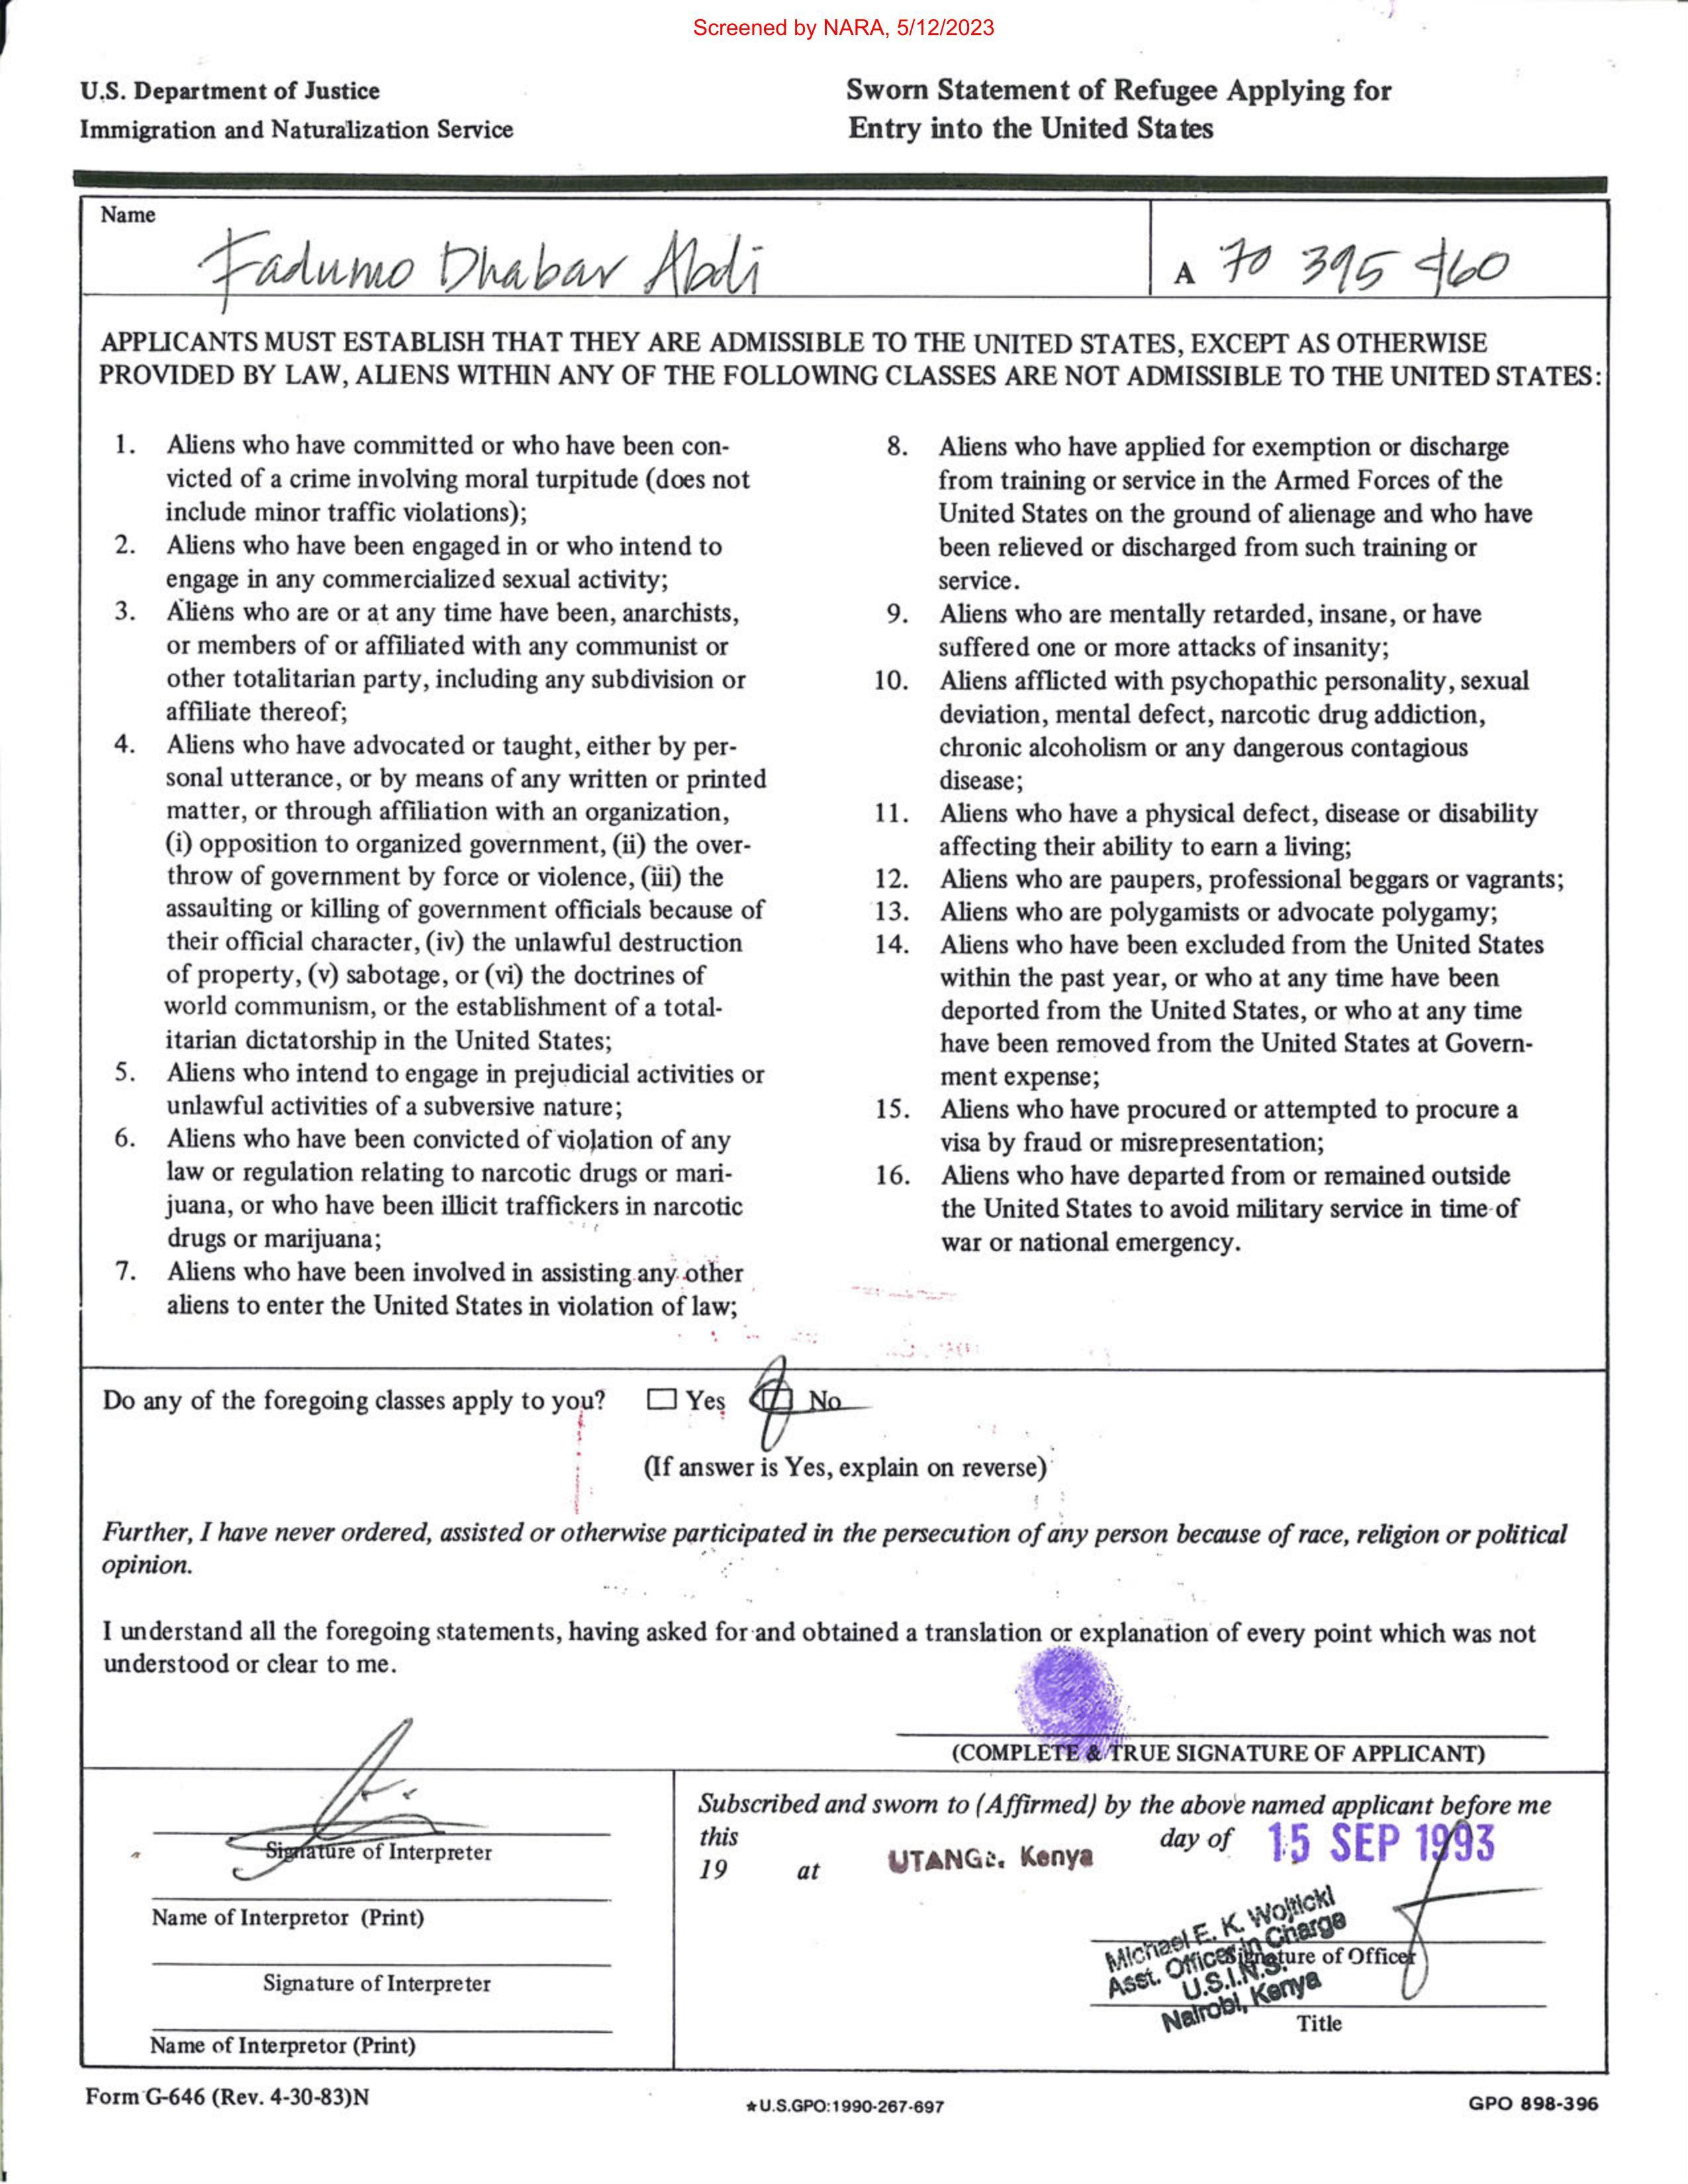 Screened by NARA, 5/12/2023
U.S. Department of Justice
Immigration and Naturalization Service
Sworn Statement of Refugee Applying for
Entry into the United States
Name
Fadumo Dhabar Abdi
A 70 395 460
APPLICANTS MUST ESTABLISH THAT THEY ARE ADMISSIBLE TO THE UNITED STATES, EXCEPT AS OTHERWISE
PROVIDED BY LAW, ALIENS WITHIN ANY OF THE FOLLOWING CLASSES ARE NOT ADMISSIBLE TO THE UNITED STATES:
1. Aliens who have committed or who have been con-
victed of a crime involving moral turpitude (does not
include minor traffic violations);
2. Aliens who have been engaged in or who intend to
engage in any commercialized sexual activity;
3. Aliens who are or at any time have been, anarchists,
or members of or affiliated with any communist or
other totalitarian party, including any subdivision or
affiliate thereof;
4. Aliens who have advocated or taught, either by per-
sonal utterance, or by means of any written or printed
matter, or through affiliation with an organization,
(i) opposition to organized government, (ii) the over-
throw of government by force or violence, (iii) the
assaulting or killing of government officials because of
their official character, (iv) the unlawful destruction
of property, (v) sabotage, or (vi) the doctrines of
world communism, or the establishment of a total-
itarian dictatorship in the United States;
5. Aliens who intend to engage in prejudicial activities or
unlawful activities of a subversive nature;
6. Aliens who have been convicted of violation of any
law or regulation relating to narcotic drugs or mari-
juana, or who have been illicit traffickers in narcotic
drugs or marijuana;
7. Aliens who have been involved in assisting any other
aliens to enter the United States in violation of law;
8. Aliens who have applied for exemption or discharge
from training or service in the Armed Forces of the
United States on the ground of alienage and who have
been relieved or discharged from such training or
service.
9. Aliens who are mentally retarded, insane, or have
suffered one or more attacks of insanity;
10. Aliens afflicted with psychopathic personality, sexual
deviation, mental defect, narcotic drug addiction,
chronic alcoholism or any dangerous contagious
disease;
11. Aliens who have a physical defect, disease or disability
affecting their ability to earn a living;
12. Aliens who are paupers, professional beggars or vagrants;
13. Aliens who are polygamists or advocate polygamy;
14. Aliens who have been excluded from the United States
within the past year, or who at any time have been
deported from the United States, or who at any time
have been removed from the United States at Govern-
ment expense;
15. Aliens who have procured or attempted to procure a
visa by fraud or misrepresentation;
16. Aliens who have departed from or remained outside
the United States to avoid military service in time of
war or national emergency.
Do any of the foregoing classes apply to you? Yes No
(If answer is Yes, explain on reverse)
Further, I have never ordered, assisted or otherwise participated in the persecution of any person because of race, religion or political
opinion.
I understand all the foregoing statements, having asked for and obtained a translation or explanation of every point which was not
understood or clear to me.
(COMPLETE & TRUE SIGNATURE OF APPLICANT)
Signature of Interpreter
Name of Interpretor (Print)
Signature of Interpreter
Name of Interpretor (Print)
Subscribed and sworn to (Affirmed) by the above named applicant before me
this day of 15 SEP 1993
19 at Kenya
Michael E. K. Wojtickl
Asst. Officer in Charge
U.S.I.N.S.
Nairobi, Kenya
Signature of Officer
Title
Form G-646 (Rev. 4-30-83)N
★U.S.GPO:1990-267-697
GPO 898-396